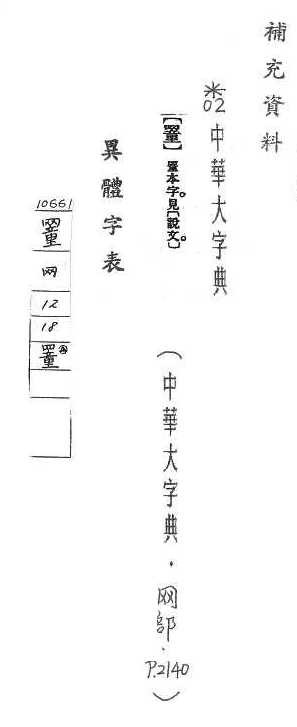 補充資料
*02 中華大字典
【罿】罿本字。見〔說文〕。
(中華大字典.网部.P.2140)
異體字表
10661
罿
网
12
18
罿